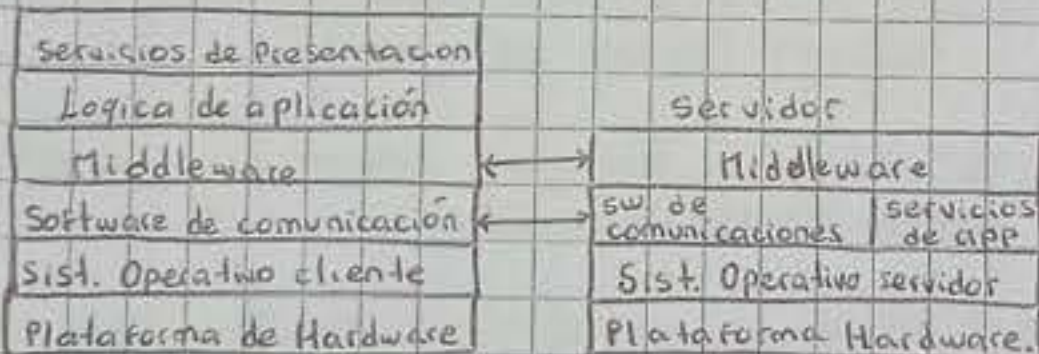 Servicios de Presentacion
Logica de aplicación
Middleware
Software de comunicación
Sist. Operativo cliente
Plataforma de Hardware
servidor
Middleware
sw. de comunicaciones
servicios de app
Sist. Operativo servidor
Plataforma Hardware.